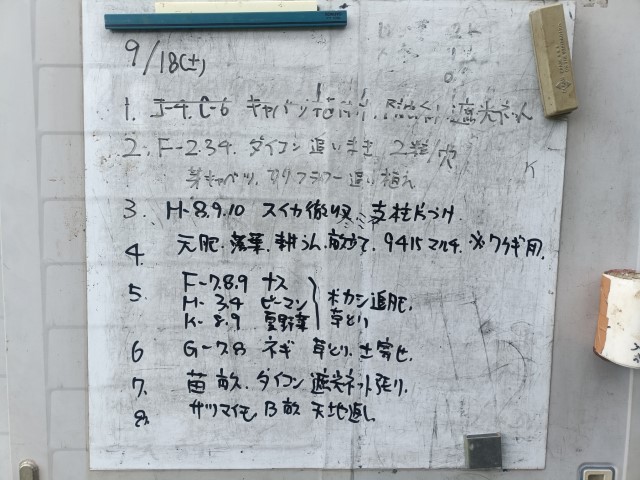 9/18(土)
1. J-4. C-6 キャベツ 遮光ネット
2. F-2.34. ダイコン 追いまき 2粒/穴
芽キャベツ. カリフラワー 追い植え
3. H-8.9.10 スイカ撤収 支柱片づけ
4. 元肥. 落葉. 耕うん. 畝立て. 9415マルチ. ※ワケギ用.
5 F-7.8.9 ナス
H-3.4 ピーマン ボカシ追肥.
K-8.9 夏野菜 草とり
6 G-7.8 ネギ 草とり. 土寄せ.
7. 苗畝. ダイコン 遮光ネット張り.
8. サツマイモ B畝 天地返し
K